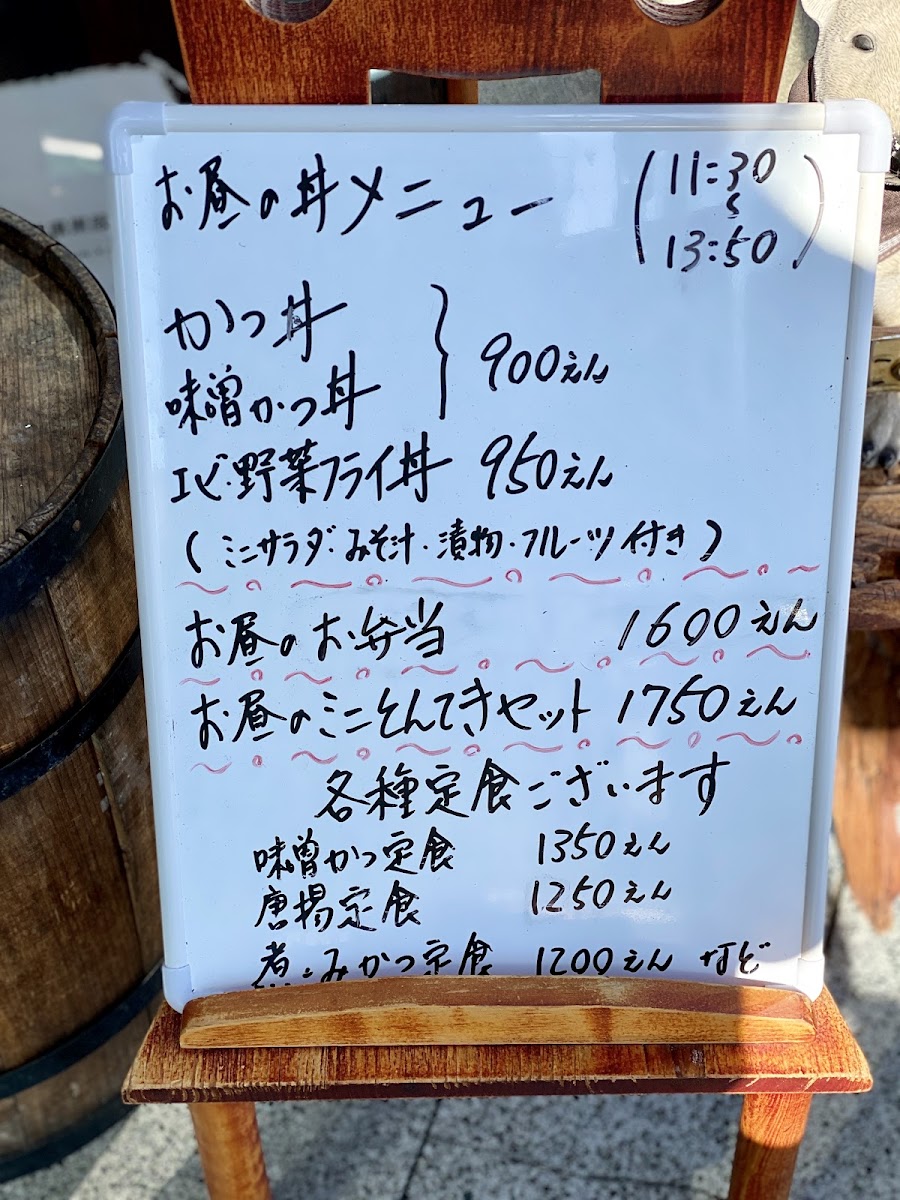 お昼の丼メニュー (11:30
〜
13:50)
かつ丼
味噌かつ丼 } 900えん
エビ・野菜フライ丼 950えん
(ミニサラダ・みそ汁・漬物・フルーツ付き)
お昼のお弁当 1600えん
お昼のミニとんてきセット 1750えん
各種定食ございます
味噌かつ定食 1350えん
唐揚定食 1250えん
煮こみかつ定食 1200えん など